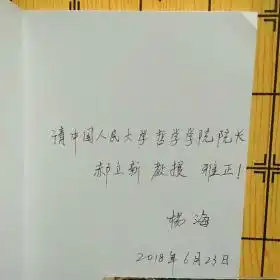 请中国人民大学哲学学院院长
郝立新 教授 雅正！
杨海
2018年6月23日